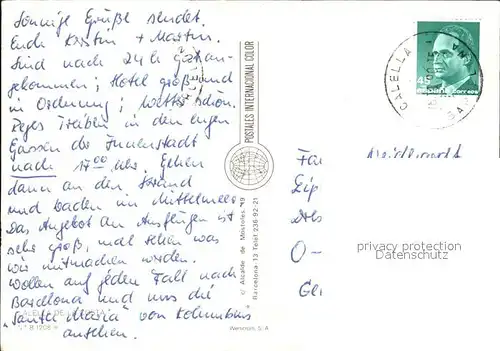 Sonnige Grüße sendet
Euch Kerstin + Martin.
Sind nach 24 h gut an-
gekommen; Hotel groß und
in Ordnung; Wetter schön.
Reges Treiben in den engen
Gassen der Innenstadt
nach 17 00 Uhr. Gehen
dann an den Strand
und baden im Mittelmeer.
Das Angebot an Ausflügen ist
sehr groß, mal sehen was
wir mitmachen werden.
Wollen auf jeden Fall nach
Barcelona und uns die
"Santa Maria" von Kolumbus
ansehen.
B 1208
POSTALES INTERNACIONAL COLOR
c/ Alcalde de Móstoles, 49
Barcelona-13 Telef. 236-92-21
Wersicolor, S/A
CALELLA
España correos
Leip
O-
Ger
privacy protection
Datenschutz